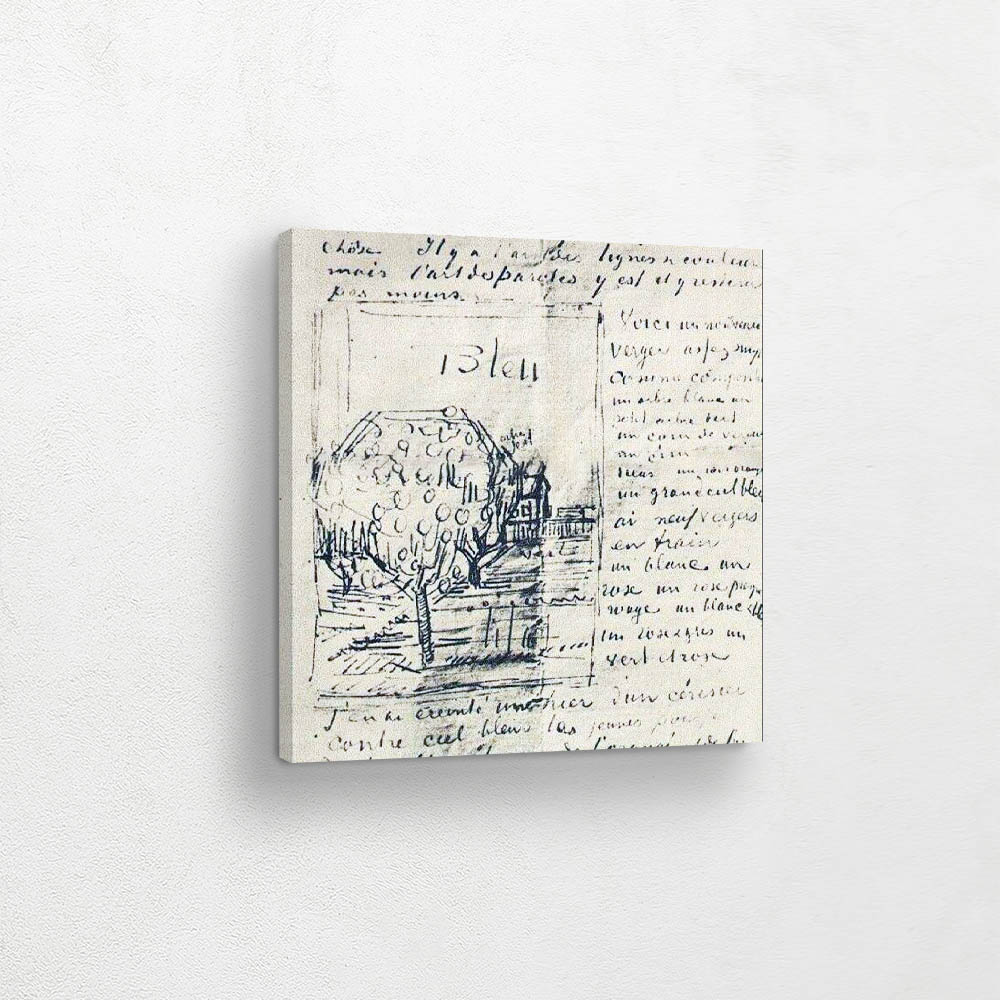 chôse Il y a l'art des lignes & couleurs
mais l'art des paroles y est et y restera
pas moins.
Bleu
Voici un nouveau
verger assez simple
comme composition
un arbre blanc un
petit arbre vert
un coin de verdure
un
un toit orange
un grand ciel bleu
ai neuf vergers
en train
un blanc un
rose un rose presque
rouge un blanc & bleu
un rose & gris un
vert et rose
J'en ai éreinté un hier d'un cérisier
contre ciel bleu les jeunes pousses
de l'orangé